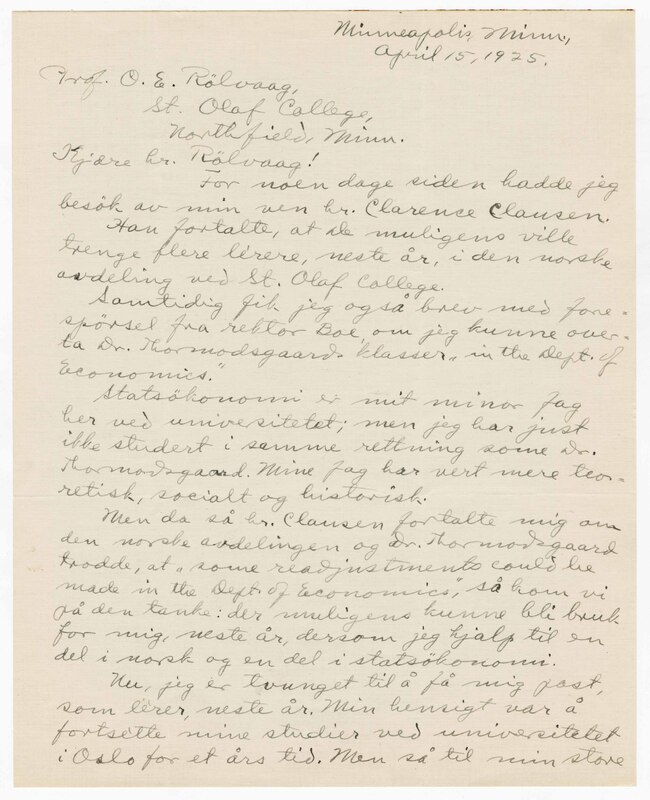 Minneapolis, Minn.,
April 15, 1925.
Prof. O. E. Rölvaag,
St. Olaf College,
Northfield, Minn.
Kjære hr. Rölvaag!
For noen dage siden hadde jeg
besök av min ven hr. Clarence Clausen.
Han fortalte, at De muligens ville
trenge flere lérere, neste år, i den norske
avdeling ved St. Olaf College.
Samtidig fik jeg også brev med fore-
spörsel fra rektor Boe, om jeg kunne over-
ta Dr. Thormodsgaards klasser „in the Dept. of
Economics."
Statsökonomi er mit minor fag
her ved universitetet; men jeg har just
ikke studert i samme rettning some Dr.
Thormodsgaard. Mine fag har vert mere teo-
retisk, socialt og historisk.
Men da så hr. Clausen fortalte mig om
den norske avdelingen og Dr. Thormodsgaard
trodde, at „some readjustments could be
made in the Dept. of Economics", så kom vi
på den tanke: der muligens kunne bli bruk
for mig, neste år, dersom jeg hjalp til en
del i norsk og en del i statsökonomi.
Nu, jeg er tvunget til å få mig post,
som lérer, neste år. Min hensigt var å
fortsette mine studier ved universitetet
i Oslo for et års tid. Men så til min store